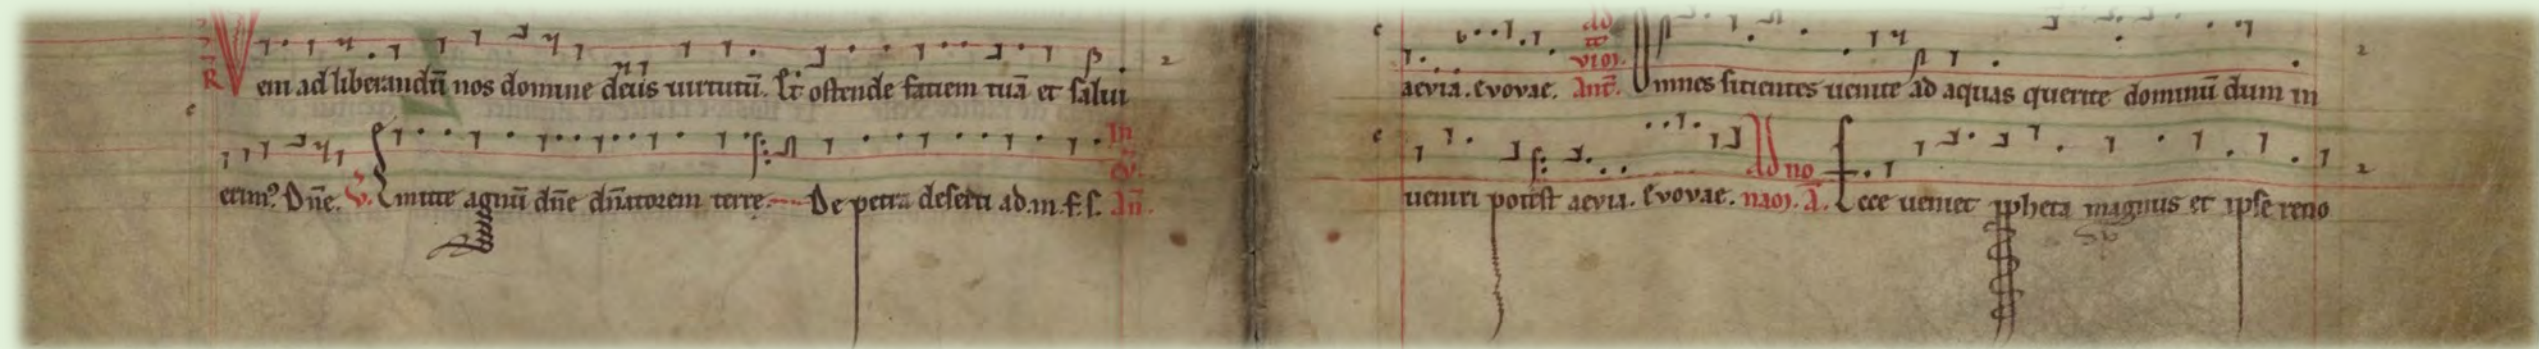 R Veni ad liberandū nos domine deus uirtutū. Et ostende faciem tuā et salui
erim? Dñe. V. Emitte agnū dñe dñatorem terre. De petra deserti ad.m.f.s. In ev. Añ.
aevia. Evovae. Ant̄. ad vi9. Omnes sitientes uenite ad aquas querite dominū dum in
ueniri potest aevia. Evovae. Ad no na9. A. Ecce ueniet ppheta magnus et ipse reno